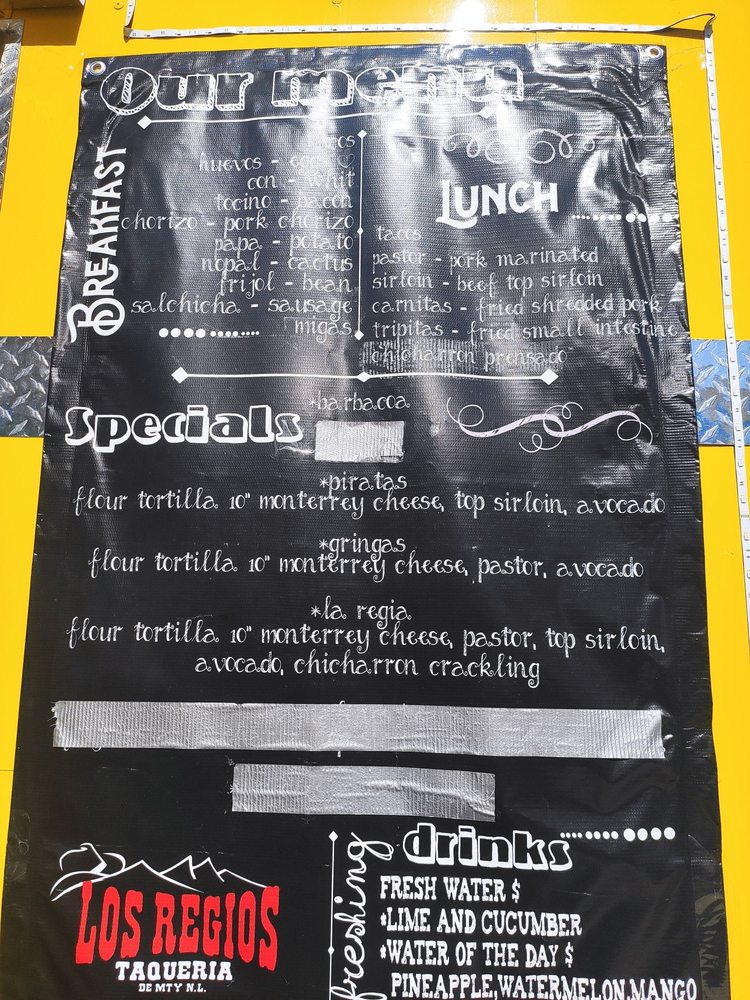 Our menu
BREAKFAST
huevos - eggs
con - whit
tocino - bacon
chorizo - pork chorizo
papa - potato
nopal - cactus
frijol - bean
salchicha - sausage
migas
LUNCH
tacos
pastor - pork marinated
sirloin - beef top sirloin
carnitas - fried shredded pork
tripitas - fried small intestine
chicharron prensado
Specials
*barbacoa
*piratas
flour tortilla 10" monterrey cheese, top sirloin, avocado
*gringas
flour tortilla 10" monterrey cheese, pastor, avocado
*la regia
flour tortilla 10" monterrey cheese, pastor, top sirloin,
avocado, chicharron crackling
LOS REGIOS
TAQUERIA
DE MTY N.L.
freshing
drinks
FRESH WATER $
*LIME AND CUCUMBER
*WATER OF THE DAY $
PINEAPPLE,WATERMELON,MANGO